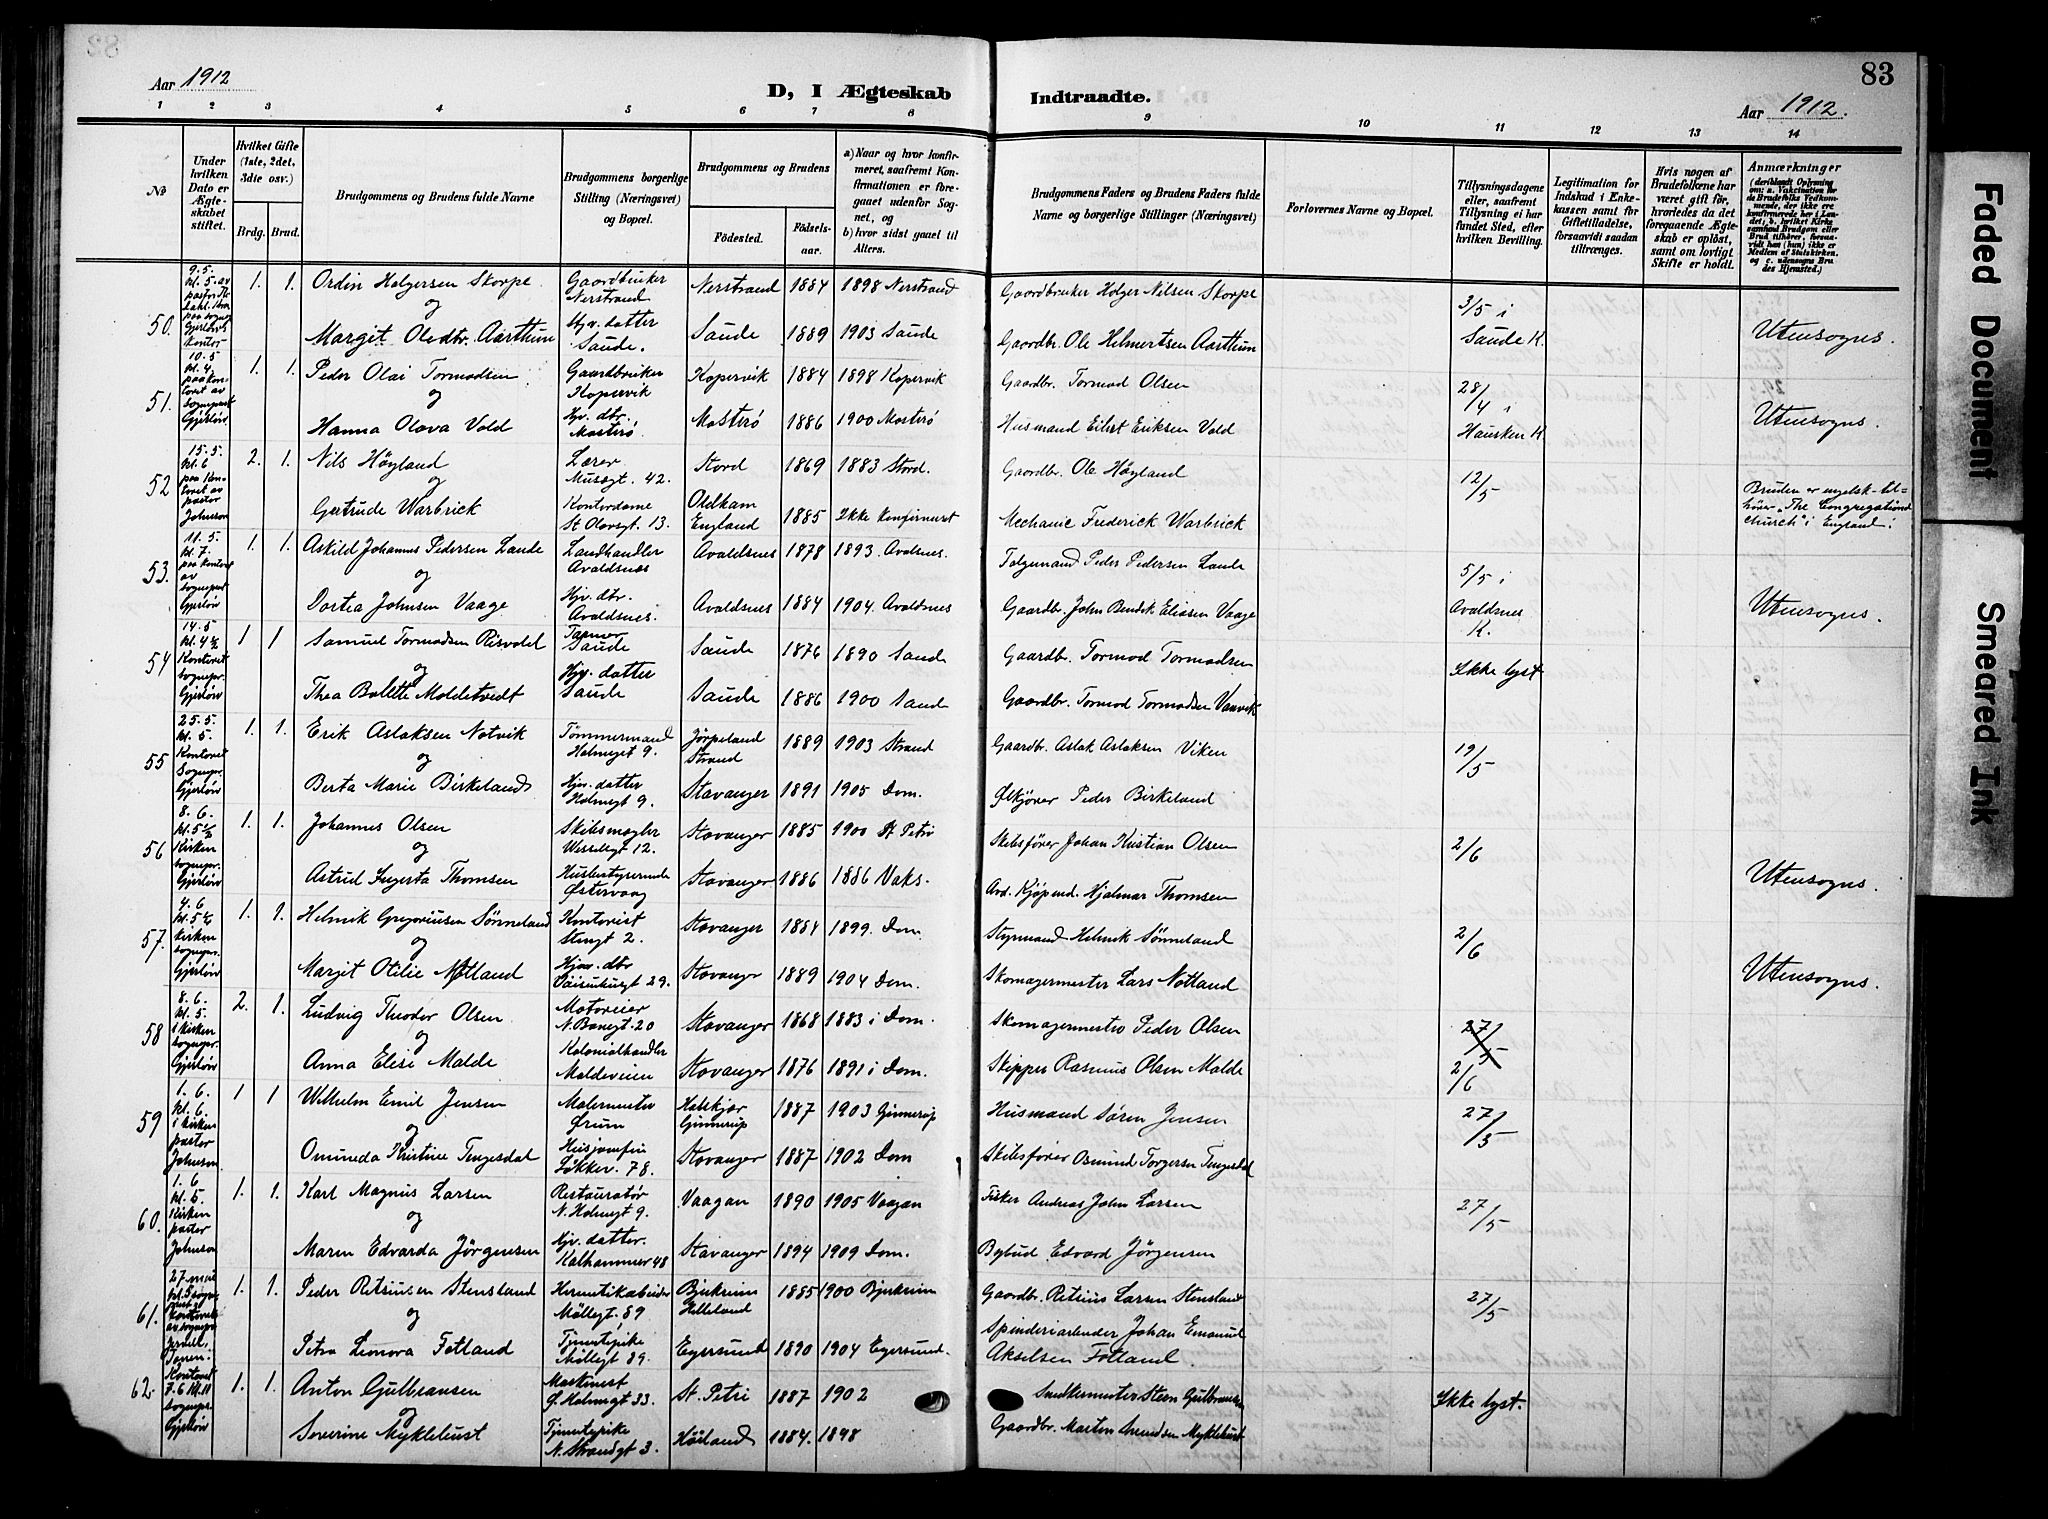 Aar 1912
D, I Ægteskab
Indtraadte.
83
Aar 1912.
1 2 3 4 5 6 7 8 9 10 11 12 13 14
No
Under hvilken Dato er Ægteskabet stiftet.
Hvilket Gifte (1ste, 2det, 3die osv.)
Brdg. Brud.
Brudgommens og Brudens fulde Navne
Brudgommens borgerlige Stilling (Næringsvei) og Bopæl.
Brudgommens og Brudens
Födested.
Födselsaar.
a) Naar og hvor konfirmeret, saafremt Konfirmationen er foregaaet udenfor Sognet, og
b) hvor sidst gaaet til Alters.
Brudgommens Faders og Brudens Faders fulde Navne og borgerlige Stillinger (Næringsvei)
Forlovernes Navne og Bopæl.
Tillysningsdagene eller, saafremt Tillysning ei har fundet Sted, efter hvilken Bevilling.
Legitimation for Indskud i Enkekassen samt for Giftetilladelse, forsaavidt saadan tiltrænges.
Hvis nogen af Brudefolkene har været gift før, hvorledes da det foregaaende Ægteskab er oplöst, samt om lovligt Skifte er holdt.
Anmærkninger
50. 1. 1. Ordin Holgersen Skorpe Gaardbruker Nerstrand Nerstrand 1884 1898 Nerstrand Gaardbruker Holger Nilsen Skorpe 3/5 i
og
Margit Oledtr. Aarthun Hjv. datter Saude. Saude 1889 1903 Saude Gaardbr. Ole Helmertsen Aarthun Saude K. Utensogns.
51. 1. 1. Peder Olai Tormodsen Gaardbruker Kopervik Kopervik 1884 1898 Kopervik Gaardbr. Tormod Olsen 28/4 i
og
Hanna Olava Vold Hjv. dtr. Mosterö Mosterö 1886 1900 Mosterö Husmand Eilert Eriksen Vold Hausken K. Utensogns.
52 15.5. kl. 6 2. 1. Nils Höyland Lærer Musegt. 42. Stord 1869 1883 Stord. Gaardbr. Ole Höyland 12/5
og
Gertrude Warbrick Kontordame St Olavsgt. 13. Oldham England 1885 Ikke konfirmeret Mechanic Frederick Warbrick Bruden er engelsk - tilhører "The Congregational church" i England.
53. 11.5. kl. 7. 1. 1. Askild Johannes Pedersen Lande Landhandler Avaldsnæs Avaldsnes 1878 1893. Avaldsnes. Folgemand Peder Pedersen Lande 5/5 i
og
Dortea Johnsen Vaage Hjv. dtr. Avaldsnes. Avaldsnes 1884 1904. Avaldsnes Gaardbr. John Bendik Eliasen Vaage Avaldsnes K. Utensogns.
54 14.5 kl. 4½ Kontoret sognepr. Gjerløw 1 1 Samuel Tormodsen Risvold Saude Saude 1876 1890 Saude Gaardbr. Tormod Tormodsen Ikke lyst
og
Thea Bolette Moldetvedt Hjv. datter Saude Saude 1886 1900 Saude Gaardbr. Tormod Tormodsen Vanvik
55 25.5. kl. 5. Kontoret Sognepr. Gjerløw 1. 1. Erik Aslaksen Notvik Tömmermand Holmegt 9. Jørpeland Strand 1889 1903 Strand Gaardbr. Aslak Aslaksen Viken 19/5
og
Berta Marie Birkeland Hjv. datter Holmegt 9. Stavanger 1891 1905 Dom. Ølkjörer Peder Birkeland
56 8.6. kl. 5½ Kirken sognepr. Gjerløw 1. 1. Johannes Olsen Skibsmægler Wesselsgt 12. Stavanger 1885 1900 St Petri Skibsförer Johan Kristian Olsen 2/6
og
Astrid Ingerta Thomsen Husbestyrerinde Østervaag Stavanger 1886 1886 Vaks. Avd. Kjöpmd. Hjalmar Thomsen Utensogns.
57. 4.6 kl. 5½ kirken sognepr. Gjerløw 1. 1. Helmik Gregoriusen Sömmeland Kontorist Stengt 2. Stavanger 1884 1899. Dom. Styrmand Helmik Sömmeland 2/6
og
Margit Otilie Nøtland Hjv. dtr 29. Stavanger 1889 1904 Dom. Skomagermester Lars Notland Utensogns.
58 8.6. kl. 5. i kirken sognepr. Gjerløw 2. 1. Ludvig Theodor Olsen Motoreier N. Banegt. 20 Stavanger 1868 1883 i Dom. Skomagermester Peder Olsen 27/5
og
Anna Elise Malde Kolonialhandler Maldeveien Stavanger 1876 1891 i Dom. Skipper Rasmus Olsen Malde 2/6
59 1.6. kl. 6. i kirken pastor Johnson 1 1 Wilhelm Emil Jensen Malermester Ørum Ginnerup 1887 1903 Ginnerup Husmand Sören Jensen 27/5
og
Omineda Kristine Tengesdal Løkkev. 78. Stavanger 1887 1902 Dom Skibsförer Osmund Torgersen Tengesdal
60. 1.6 kl. 5. Kirken pastor Johnson 1. 1. Karl Magnus Larsen Restauratör N. Holmegt 9. Vaagan 1890 1905 Vaagan Fisker Andreas John Larsen 27/5
og
Maren Edvarda Jörgensen Hjv. datter. Kalhammer 48 Stavanger 1894 1909 Dom. Bybud Edvard Jörgensen
61. 27 mai 1. 1. Peder Retsiusen Stensland Hermetikarbeider Möllegt. 89 Bjerkreim Helleland 1885 1900 Bjerkreim Gaardbr. Retsius Larsen Stensland 27/5
og
Petra Leonora Fotland Tjenestepike Möllegt 89. Egersund 1890 1904 Egersund. Spinderiarbeider Johan Emanuel Akselsen Fotland.
62. Kontoret 7.6 kl. 11 sognepr. Gjerløw 1. 1. Anton Gulbransen Maskinist Ø. Holmegt 33. St. Petri 1887 1902 Snekkermester Steen Gulbransen Ikke lyst.
og
Severine Myklebust Tjenestepike N. Strandgt 3. Høiland 1884. 1898 Gaardbr. Martin Myklebust
Faded Document
Smeared Ink